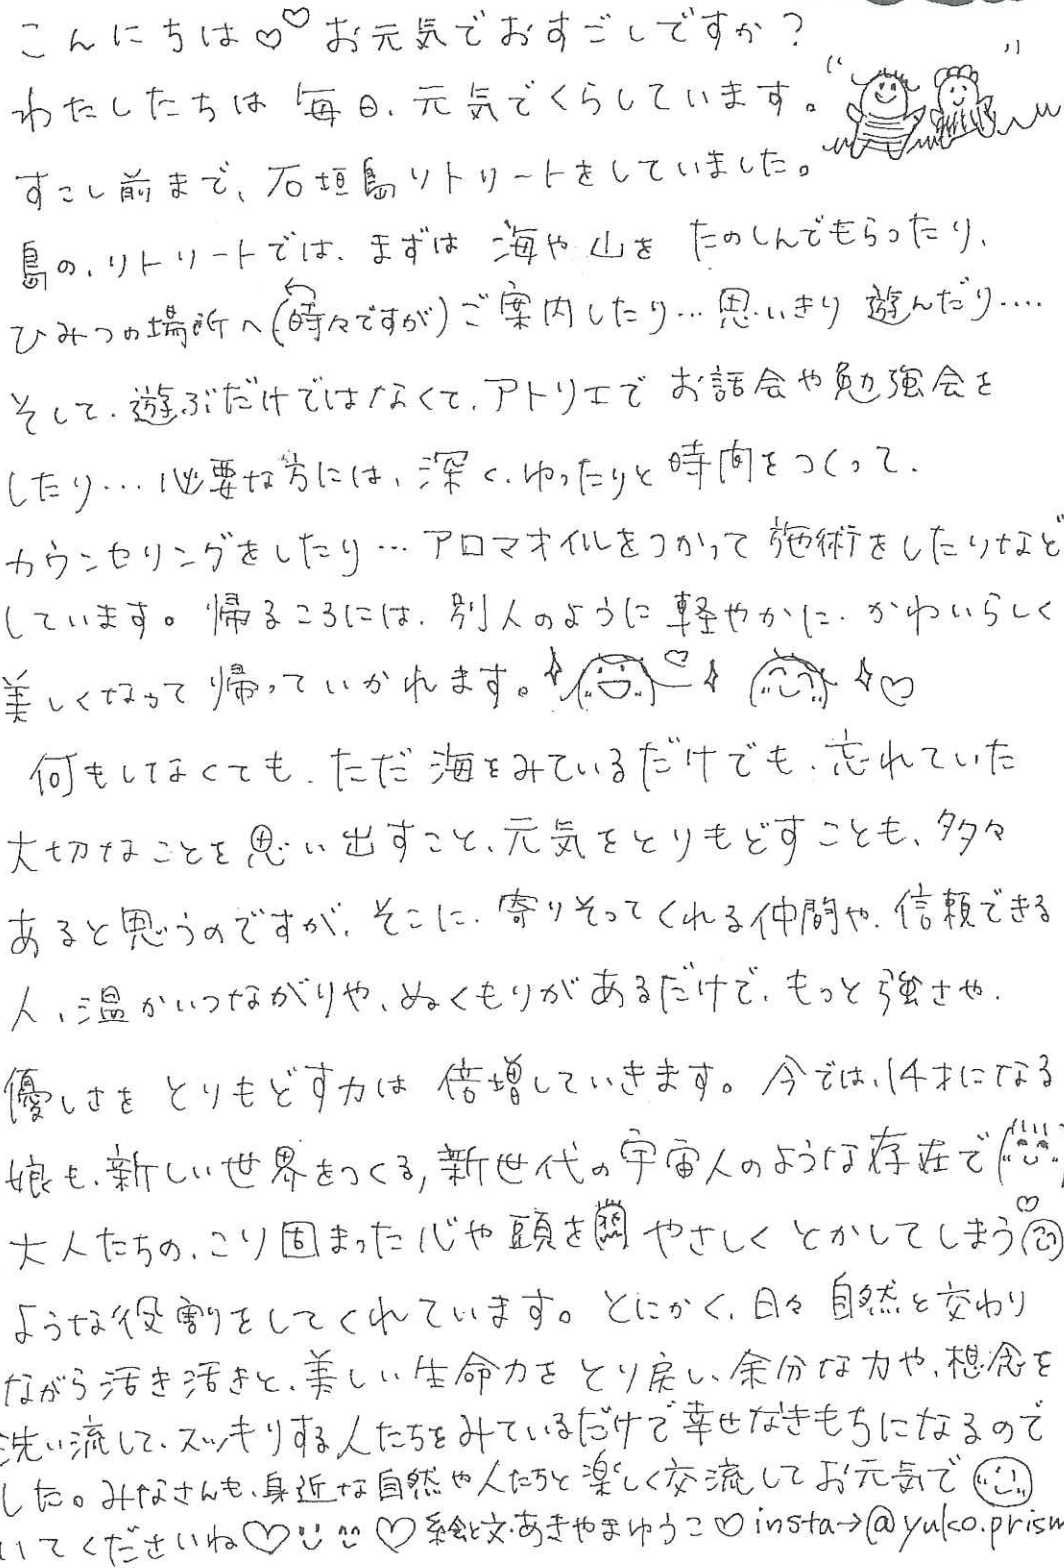 こんにちは♡♡お元気でおすごしですか？
わたしたちは 毎日、元気でくらしています。
すこし前まで、石垣島リトリートをしていました。
島の、リトリートでは、まずは 海や山を たのしんでもらったり、
ひみつの場所へ(時々ですが)ご案内したり…思いきり 遊んだり‥‥
そして、遊ぶだけではなくて、アトリエで お話会や勉強会を
したり…必要な方には、深く、ゆったりと 時間をつくって、
カウンセリングをしたり…アロマオイルをつかって 施術をしたりなど
しています。帰るころには、別人のように 軽やかに、かわいらしく
美しくなって 帰っていかれます。♡♡
何もしてなくても、ただ 海をみているだけでも、忘れていた
大切なことを思い出すこと、元気をとりもどすことも、多々
あると思うのですが、そこに、寄りそってくれる仲間や、信頼できる
人、温かいつながりや、ぬくもりがあるだけで、もっと強さや、
優しさを とりもどす力は 倍増していきます。今では、14才になる
娘も、新しい世界をつくる,新世代の宇宙人のような存在で
大人たちの、こり固まった心や頭を やさしく とかしてしまう♡
ような役割をしてくれています。とにかく、日々 自然と交わり
ながら活き活きと、美しい生命力を とり戻し、余分な力や、想念を
洗い流して、スッキリする人たちをみているだけで幸せなきもちになるので
した。みなさんも、身近な自然や人たちと楽しく交流してお元気で
いてくださいね♡♡絵と文・あきやまゆうこ♡insta→@yuko.prism